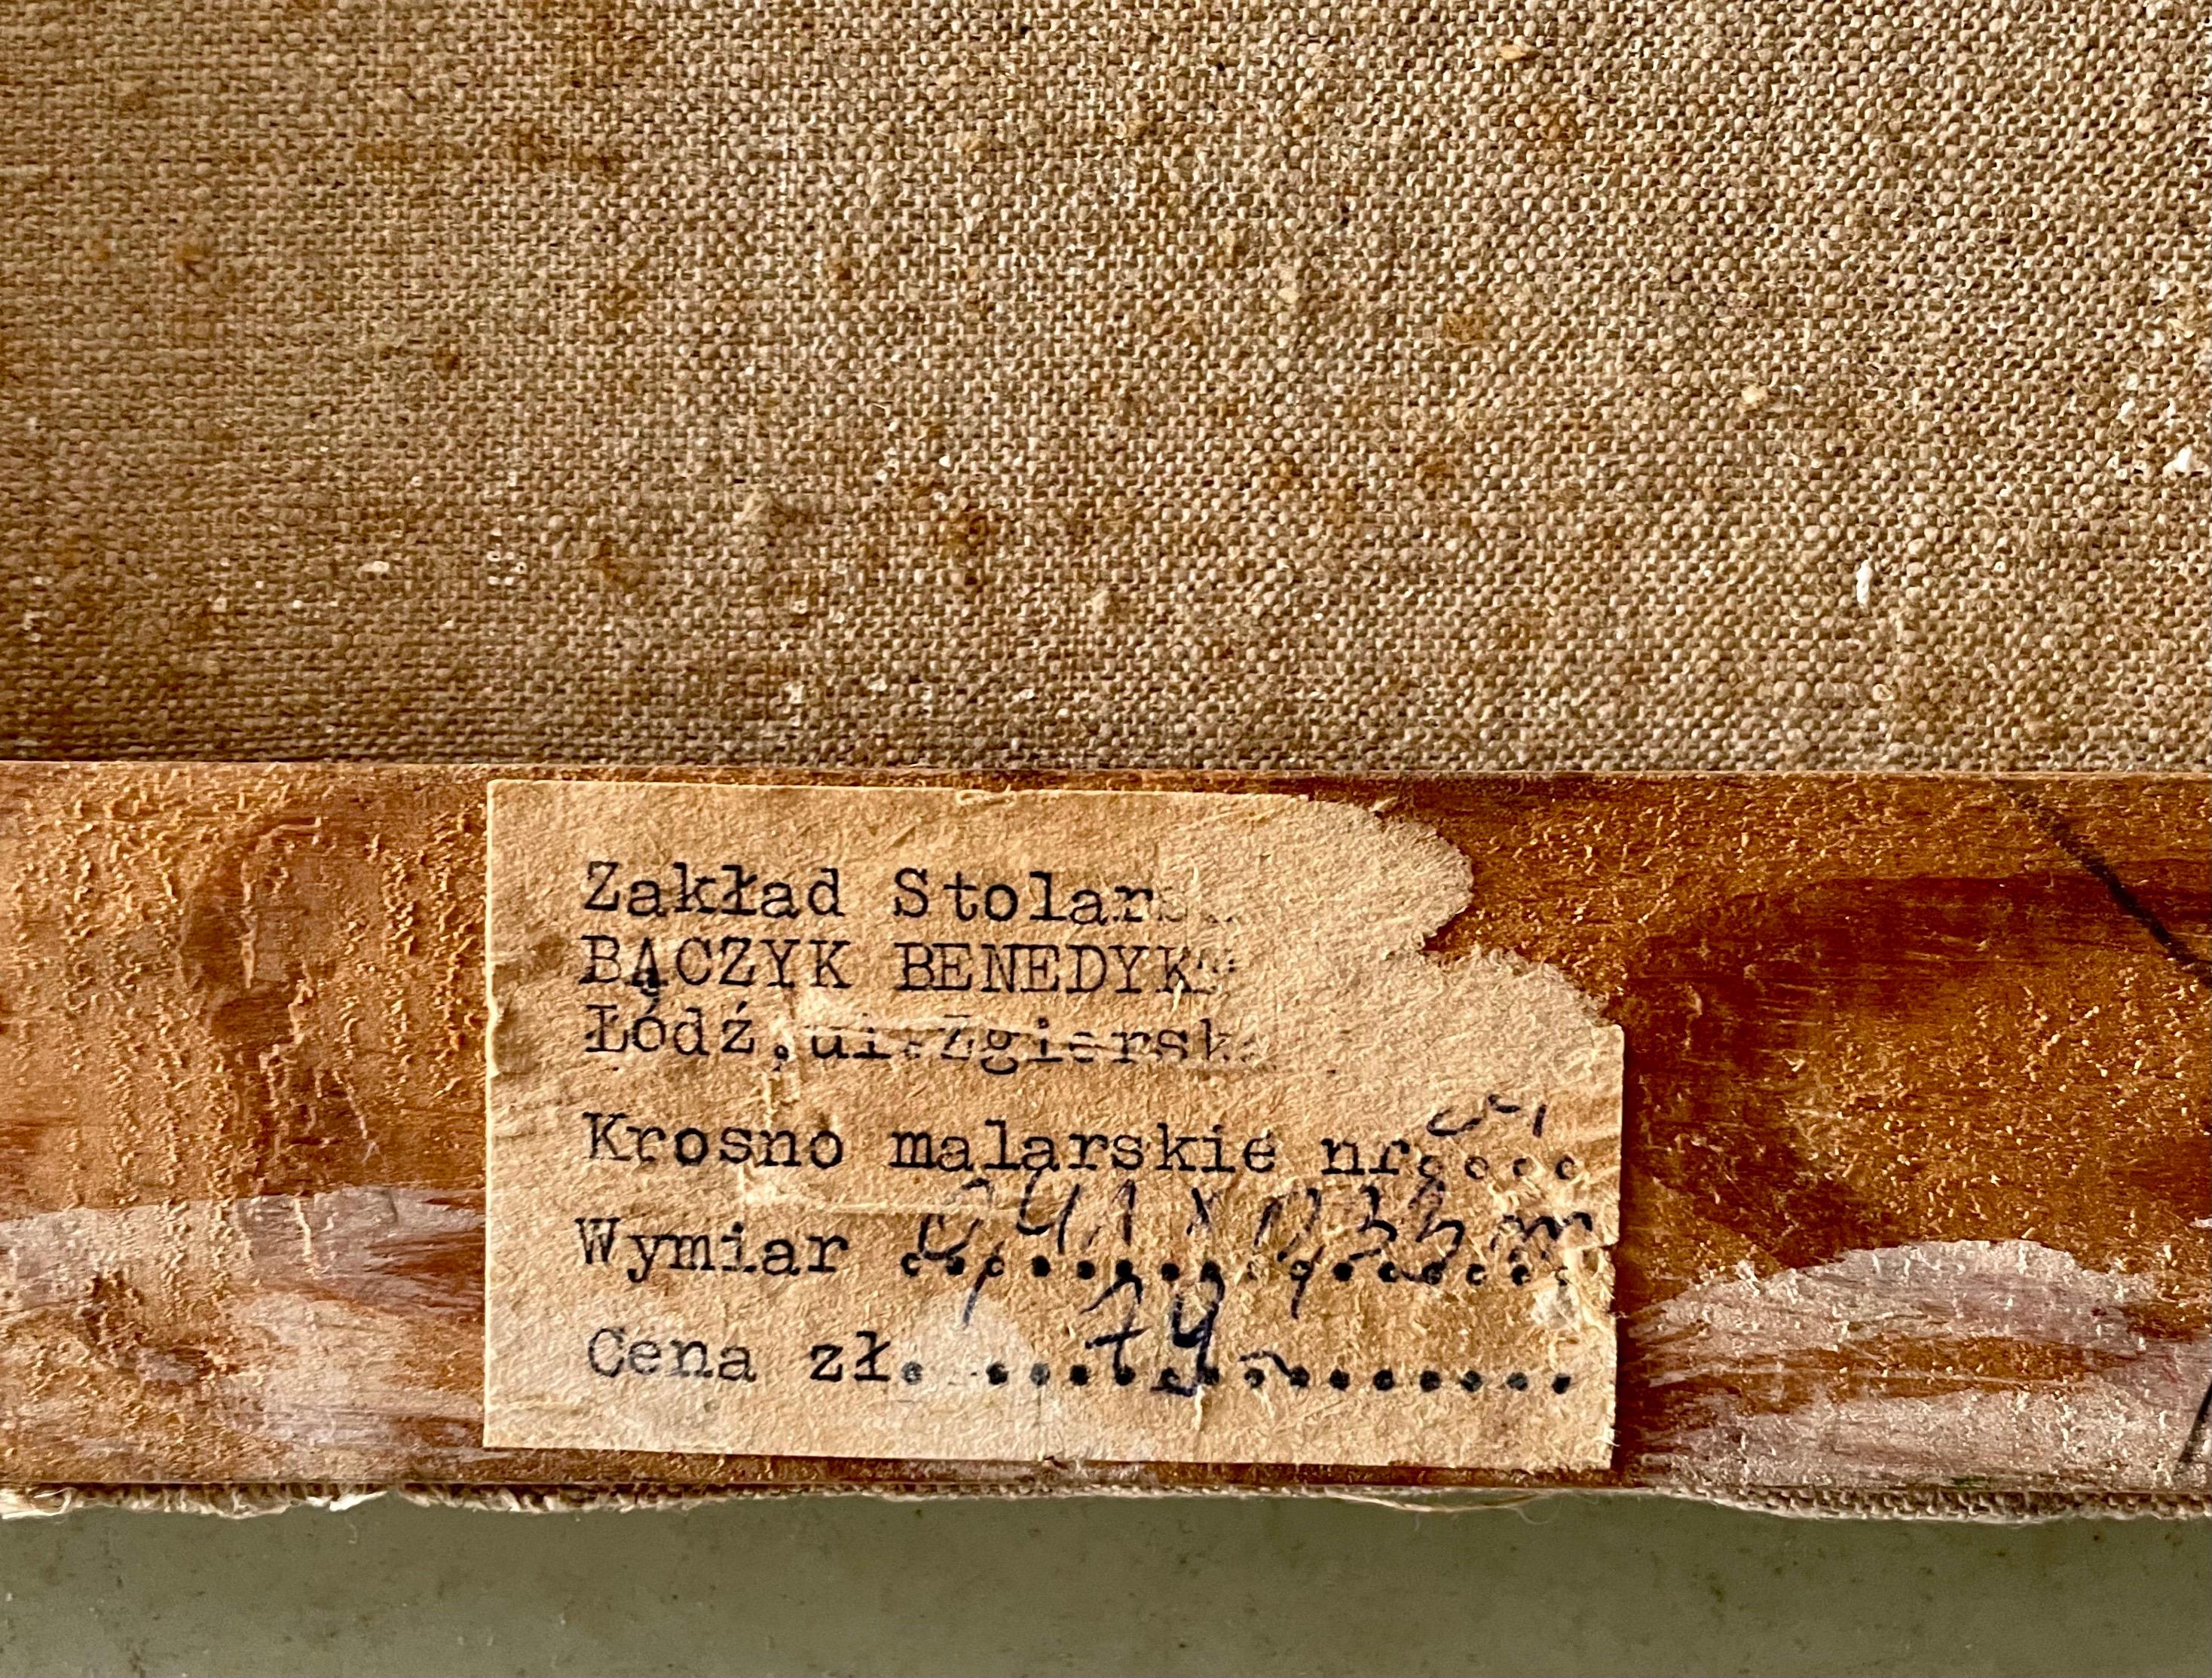 Zakład Stolars
BĄCZYK BENEDYKT
Łódź, ul. Zgierska
Krosno malarskie nr....
Wymiar 0,41 x 0,33 m
Cena zł. 79,-